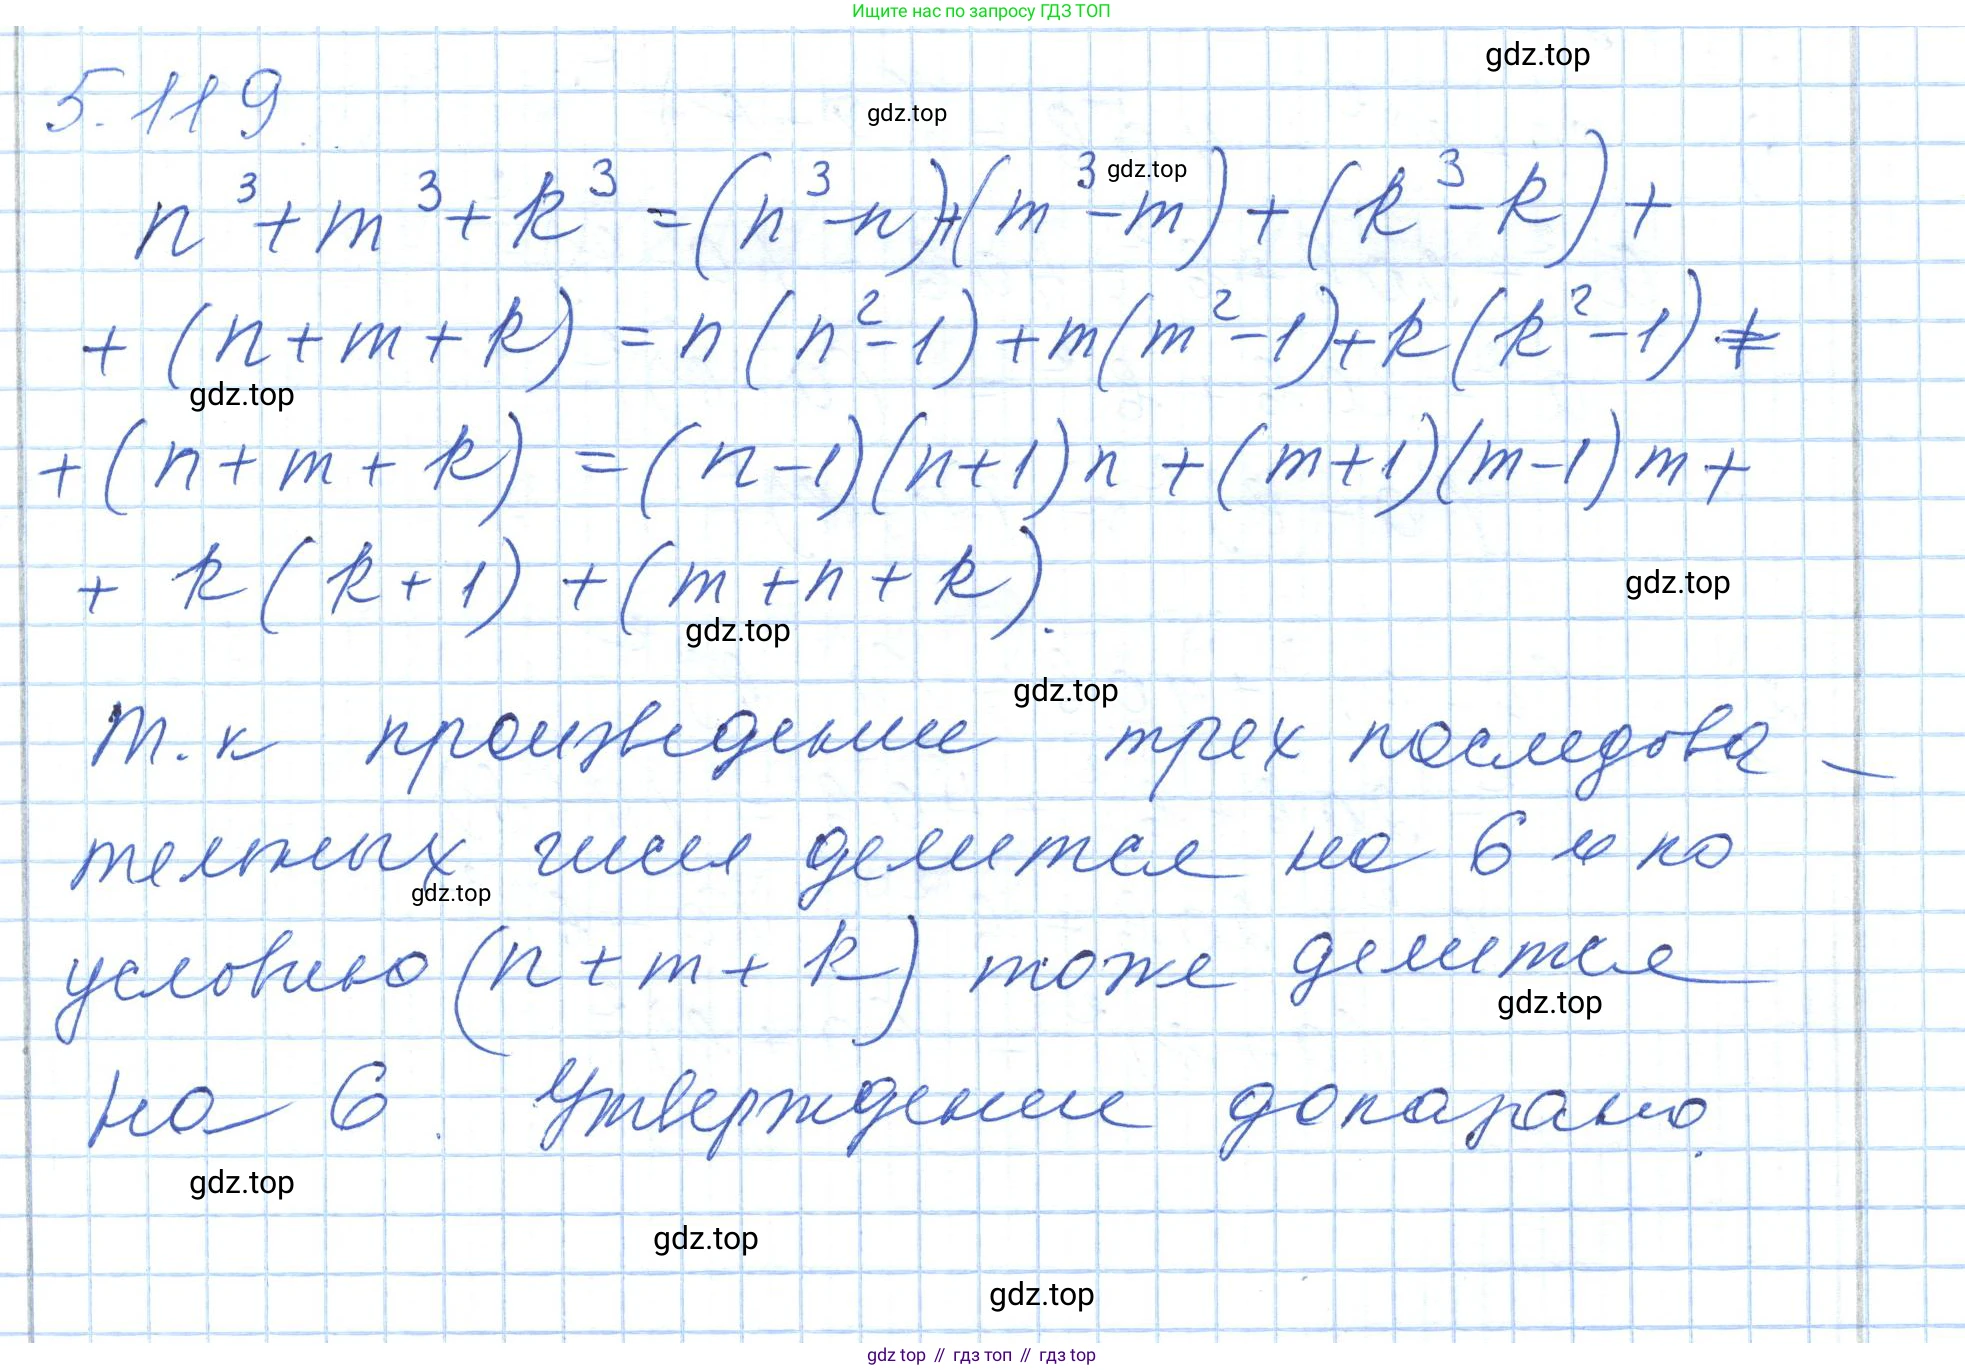 Ищите нас по запросу ГДЗ ТОП
gdz.top
5.119
gdz.top
n³+m³+k³=(n³-n)+(m³-m)+(k³-k)+
gdz.top
+(n+m+k)=n(n²-1)+m(m²-1)+k(k²-1)+
gdz.top
+(n+m+k)=(n-1)(n+1)n+(m+1)(m-1)m+
+k(k+1)+(m+n+k).
gdz.top
gdz.top
gdz.top
Т.к произведение трех последова-
тельных чисел делится на 6 и по
gdz.top
условию (n+m+k) тоже делится
gdz.top
на 6. Утверждение доказано.
gdz.top
gdz.top
gdz.top
gdz top // гдз топ // гдз top